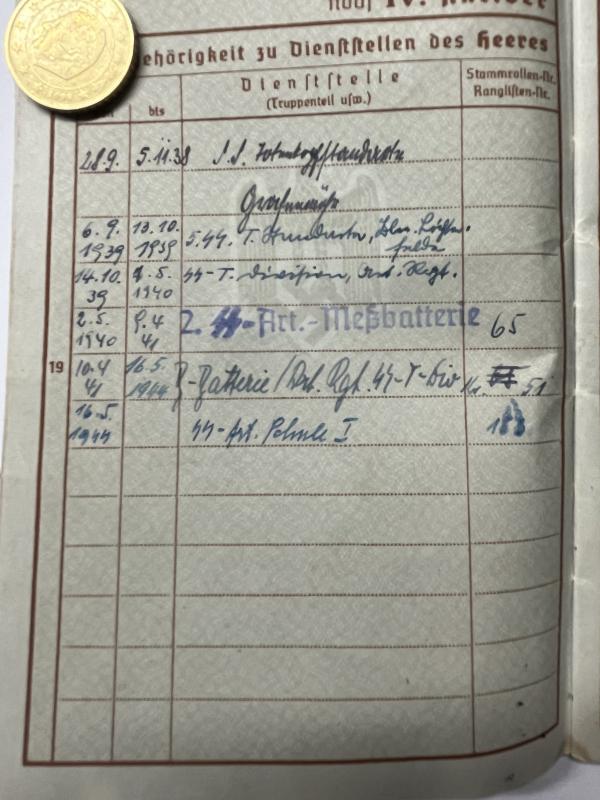 noch IV.
ehörigkeit zu Dienststellen des Heeres
bis
Dienststelle
(Truppenteil usw.)
Stammrollen-Nr.
Ranglisten-Nr.
28.9. 5.11.38 S.S. Totenkopfstandarte
6.9. 1939 13.10. 1939 5. SS. T. Standarte,
14.10. 39 1.5. 1940 SS-T. Division, Art. Regt.
2.5. 1940 9.4 41 2. SS-Art.-Meßbatterie 65
19 10.4 41 16.5. 1944 -Batterie/Art. Rgt. SS-T-Div 51
16.5. 1944 SS-Art. Schule I